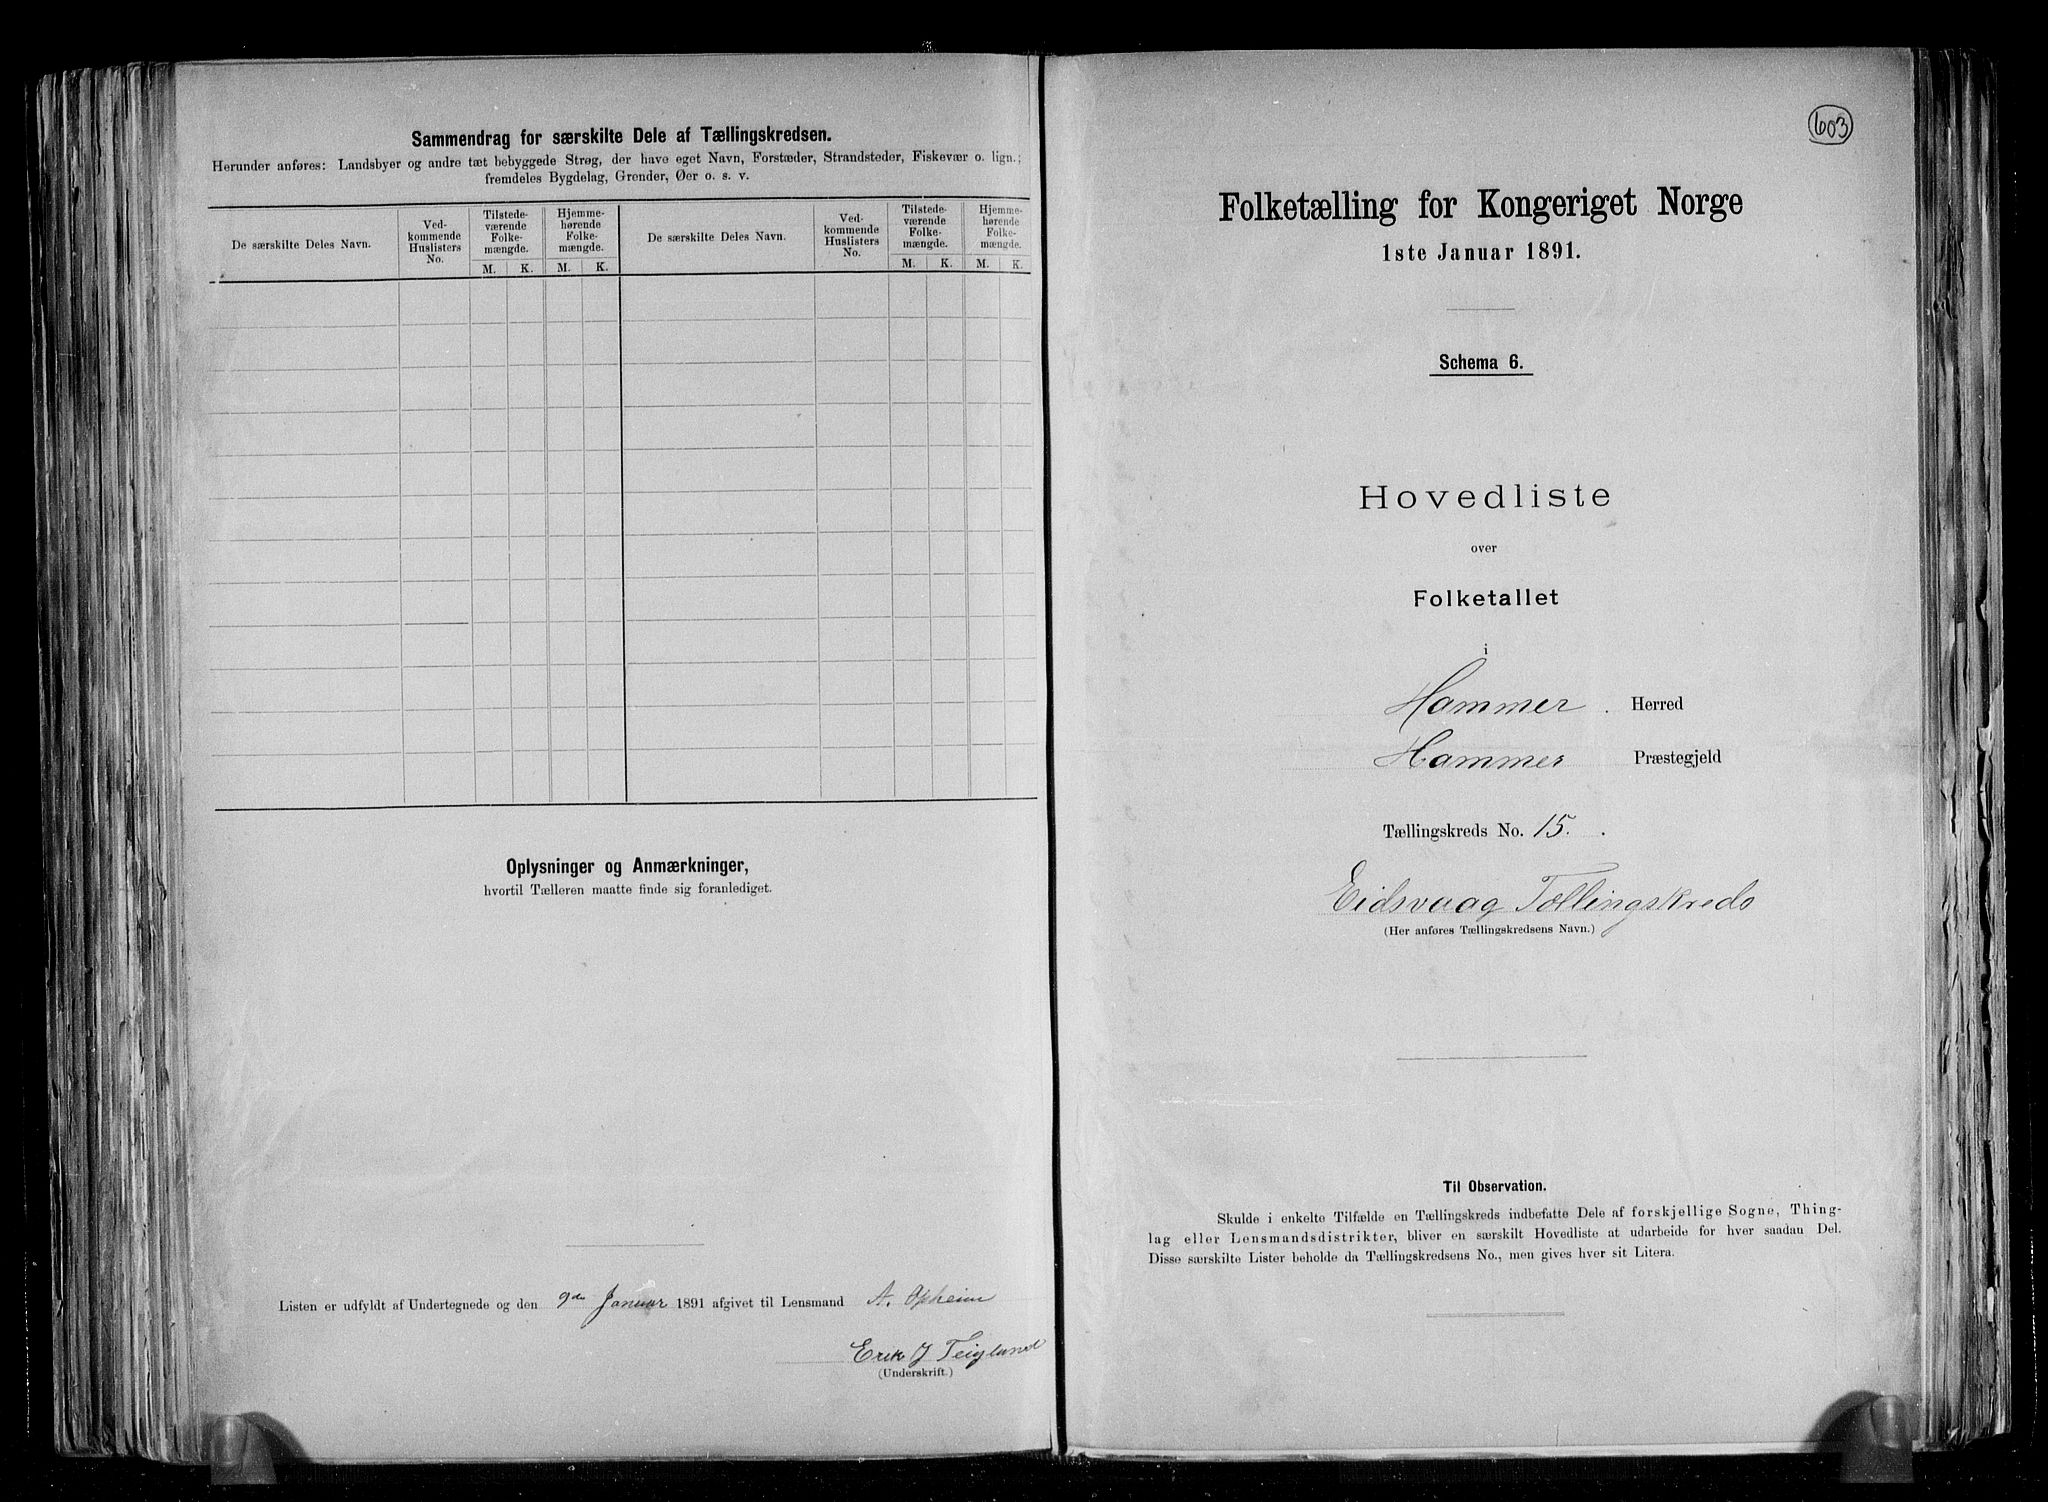 Sammendrag for særskilte Dele af Tællingskredsen.
Herunder anføres: Landsbyer og andre tæt bebyggede Strøg, der have eget Navn, Forstæder, Strandsteder, Fiskevær o. lign.;
fremdeles Bygdelag, Grender, Øer o. s. v.
De særskilte Deles Navn.
Ved-
kommende
Huslisters
No.
Tilstede-
værende
Folke-
mængde.
M. K.
Hjemme-
hørende
Folke-
mængde.
M. K.
De særskilte Deles Navn.
Ved-
kommende
Huslisters
No.
Tilstede-
værende
Folke-
mængde.
M. K.
Hjemme-
hørende
Folke-
mængde.
M. K.
Oplysninger og Anmærkninger,
hvortil Tælleren maatte finde sig foranlediget.
Listen er udfyldt af Undertegnede og den 9de Januar 1891 afgivet til Lensmand A. Opheim
Erik J Teiglund
(Underskrift.)
603
Folketælling for Kongeriget Norge
1ste Januar 1891.
Schema 6.
Hovedliste
over
Folketallet
i
Hammer . Herred
Hammer Præstegjeld
Tællingskreds No. 15. .
Eidsvaag Tællingskreds
(Her anføres Tællingskredsens Navn.)
Til Observation.
Skulde i enkelte Tilfælde en Tællingskreds indbefatte Dele af forskjellige Sogne, Thing-
lag eller Lensmandsdistrikter, bliver en særskilt Hovedliste at udarbeide for hver saadan Del.
Disse særskilte Lister beholde da Tællingskredsens No., men gives hver sit Litera.